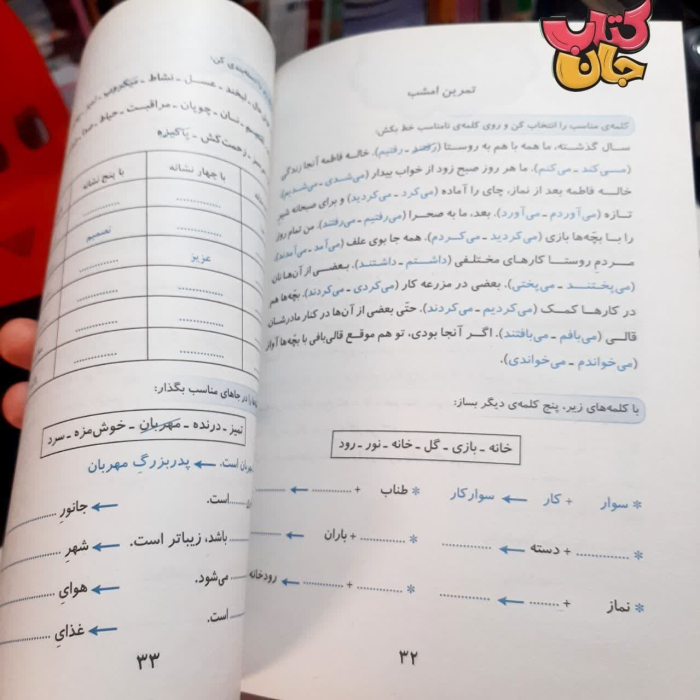 کتاب
جان
تمرین امشب
کلمه‌ی مناسب را انتخاب کن و روی کلمه‌ی نامناسب خط بکش:
سال گذشته، ما همه با هم به روستا (رفتند ـ رفتیم). خاله فاطمه آنجا زندگی
(می‌کند ـ می‌کنم). ما هر روز صبح زود از خواب بیدار (می‌شدی ـ می‌شدیم).
خاله فاطمه بعد از نماز، چای را آماده (می‌کرد ـ می‌کردید) و برای صبحانه شیر
تازه (می‌آوردم ـ می‌آورد). بعد، ما به صحرا (می‌رفتیم ـ می‌رفتند). من تمام روز
را با بچّه‌ها بازی (می‌کردید ـ می‌کردم). همه جا بوی علف (می‌آمد ـ می‌آمدند).
مردم روستا کارهای مختلفی (داشتم ـ داشتند). بعضی از آن‌ها نان
(می‌پختند ـ می‌پختی). بعضی در مزرعه کار (می‌کردی ـ می‌کردند). بچّه‌ها هم
در کارها کمک (می‌کردیم ـ می‌کردند). حتّی بعضی از آن‌ها در کنار مادرشان
قالی (می‌بافم ـ می‌بافتند). اگر آنجا بودی، تو هم موقع قالی‌بافی با بچّه‌ها آواز
(می‌خواندم ـ می‌خواندی).
با کلمه‌های زیر، پنج کلمه‌ی دیگر بساز:
خانه ـ بازی ـ گل ـ خانه ـ نور ـ رود
* سوار + کار ← سوارکار * طناب + ............ ← ............
* ............ + دسته ← ............ * ............ + باران ← ............
* نماز + ............ ← ............ * ............ + ............ ← رودخانه
۳۲
دسته‌بندی کن:
لبخند ـ عسل ـ نشاط ـ میکروب ـ تمیز
نان ـ چوپان ـ مراقبت ـ حیاط
زحمت‌کش ـ پاکیزه
با چهار نشانه با پنج نشانه
تصمیم
عزیز
را در جاهای مناسب بگذار:
تمیز ـ درنده ـ مهربان ـ خوش‌مزه ـ سرد
مهربان است. ← پدربزرگِ مهربان
............ است. ← جانورِ ............
............ باشد، زیباتر است. ← شهرِ ............
............ می‌شود. ← هوایِ ............
............ است. ← غذایِ ............
۳۳